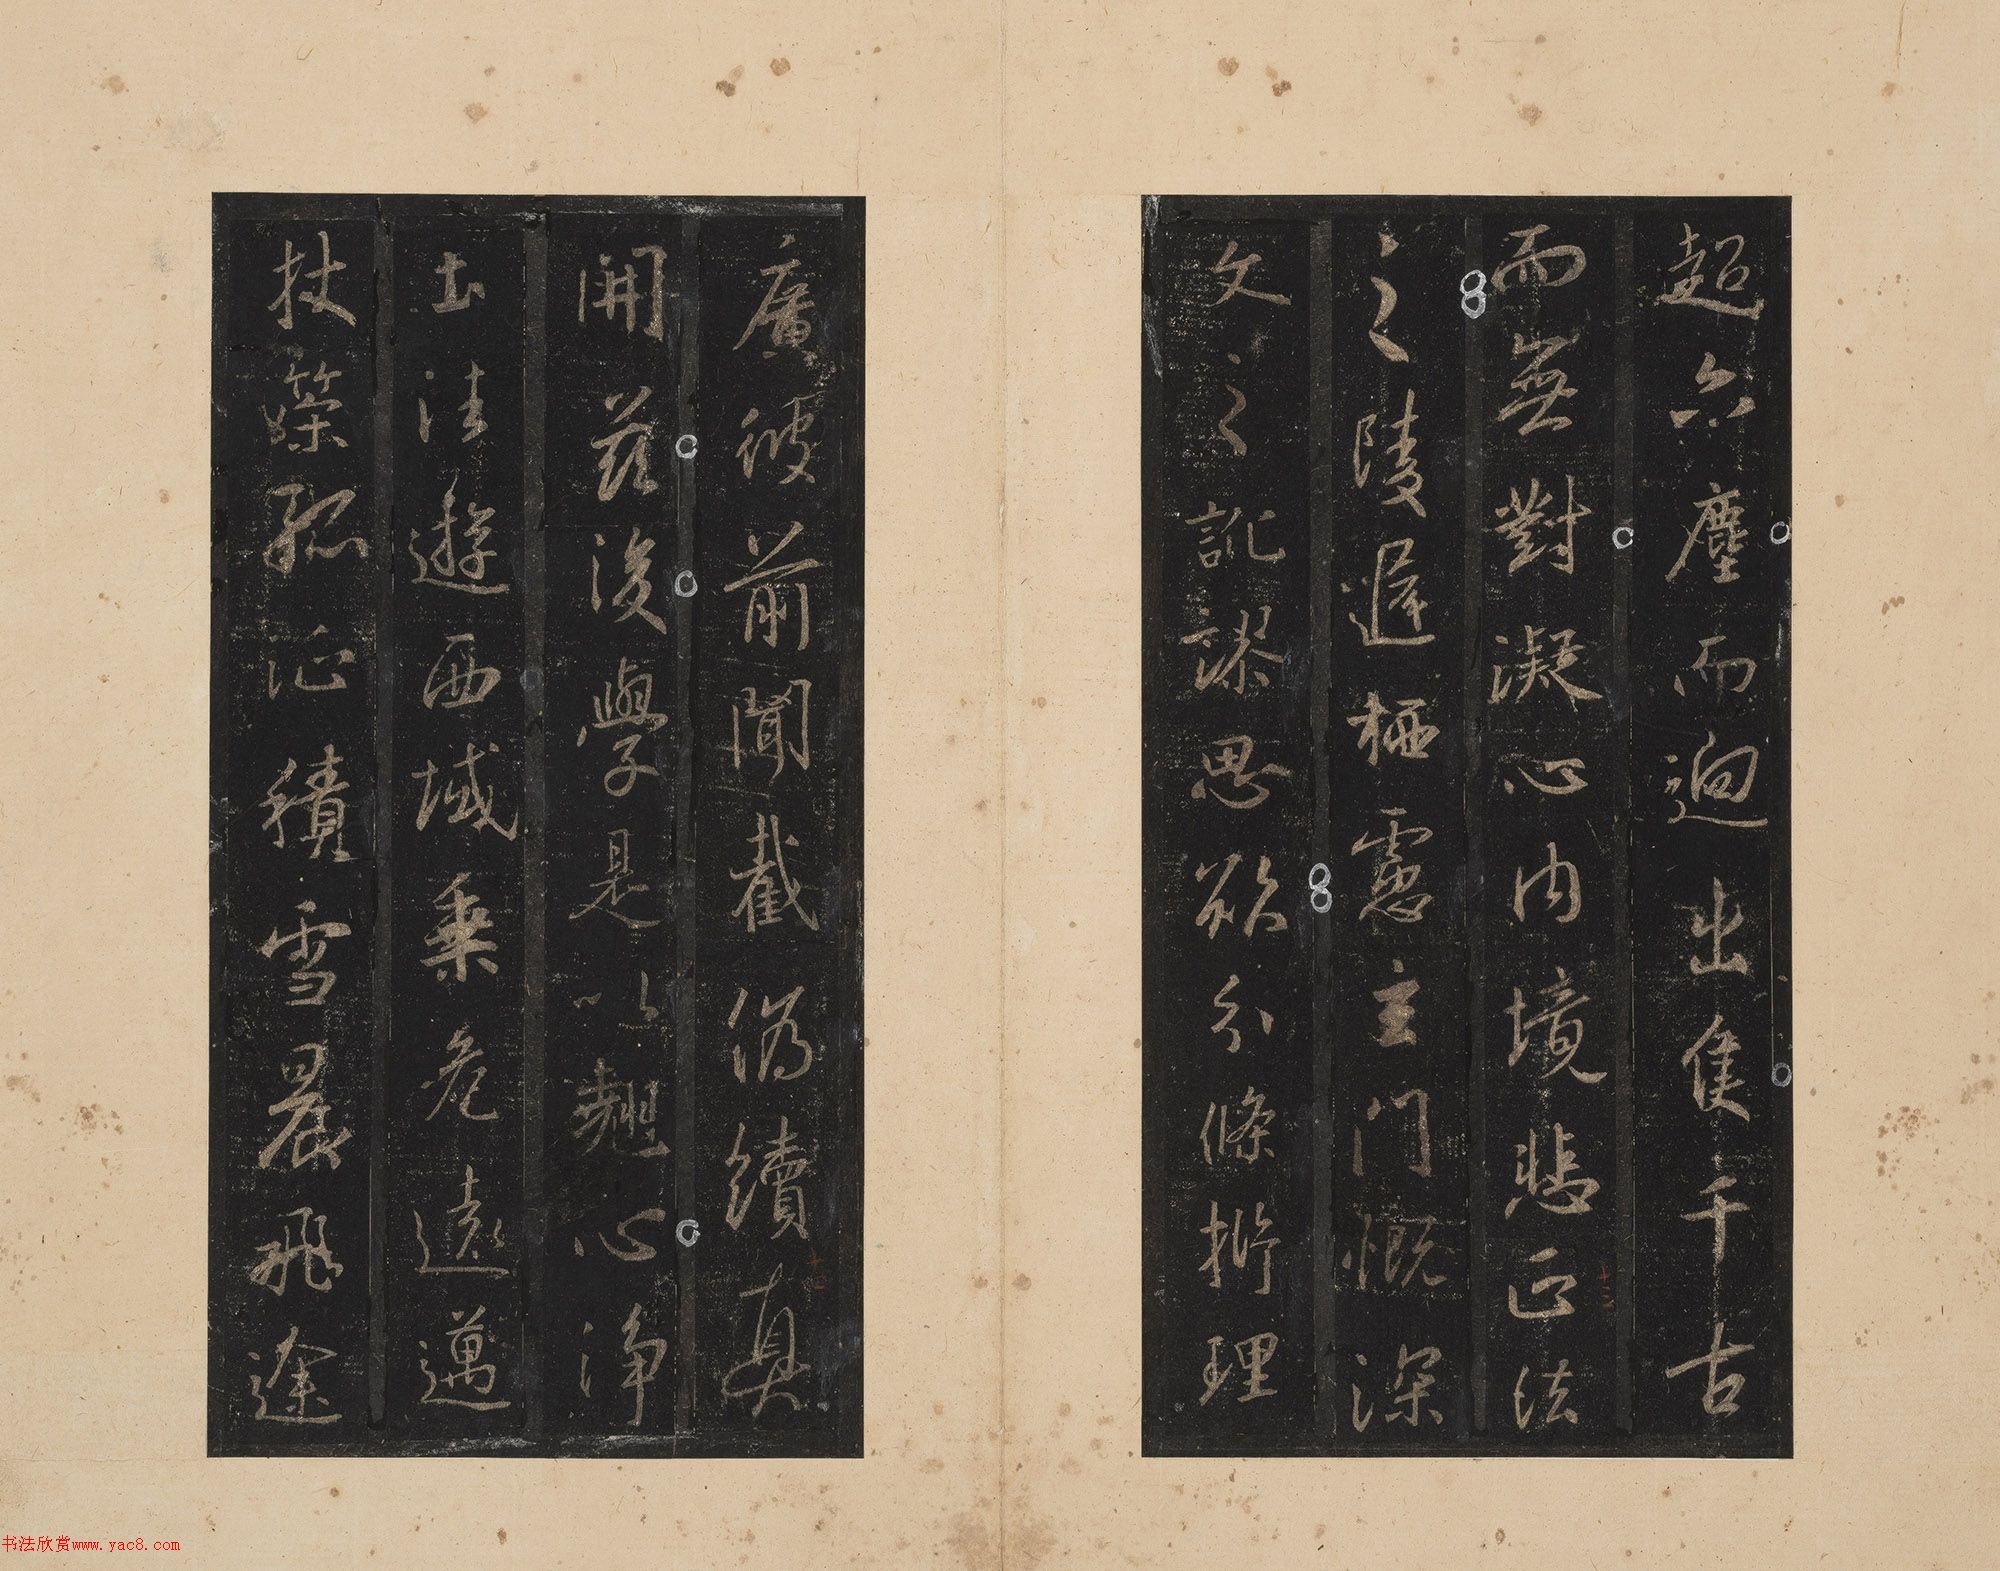 超六塵而迥出隻千古
而無對凝心內境悲正法
之陵遲栖慮玄門慨深
文之訛謬思欲分條析理
廣彼前聞截偽續真
開茲後學是以翹心淨
土法遊西域乗危遠邁
杖策孤征積雪晨飛途
十三
十四
书法欣赏www.yac8.com